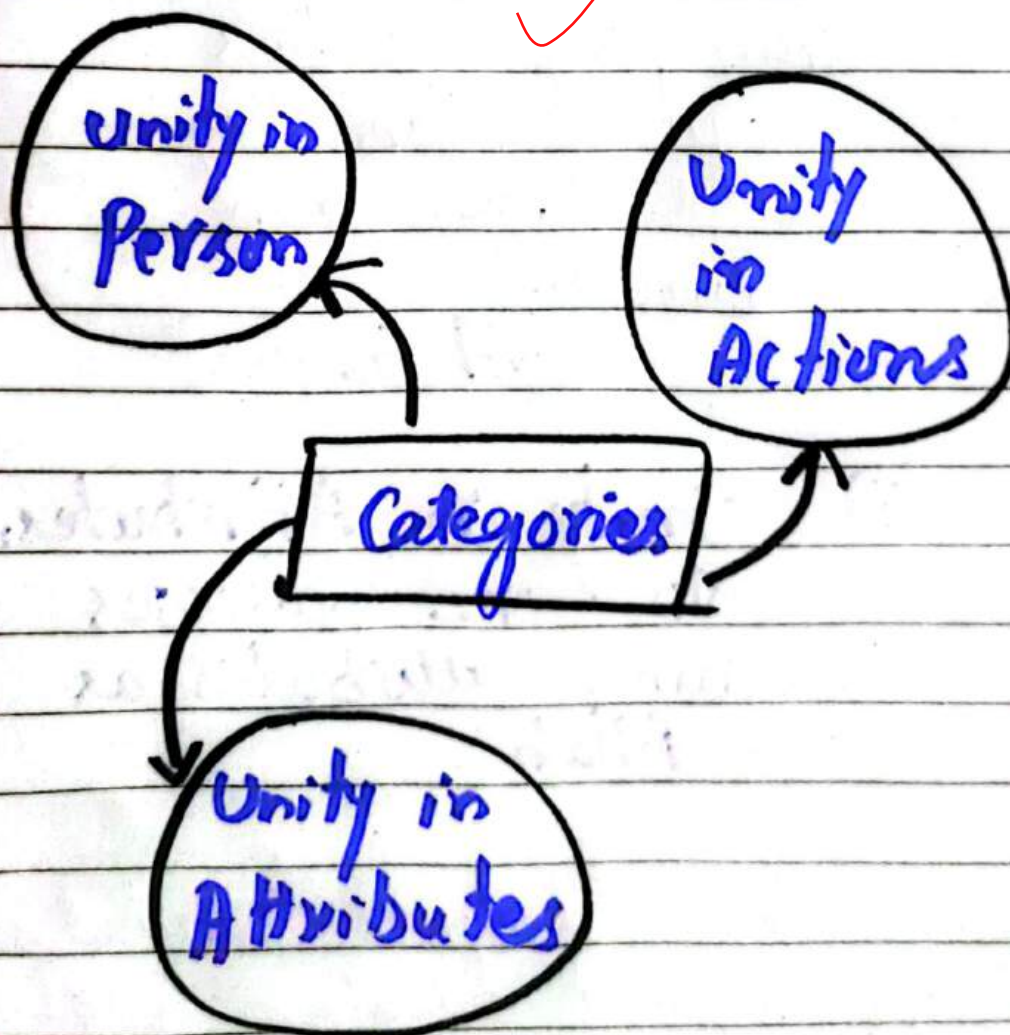 Unity in
Person
Unity
in
Actions
Categories
Unity in
Attributes